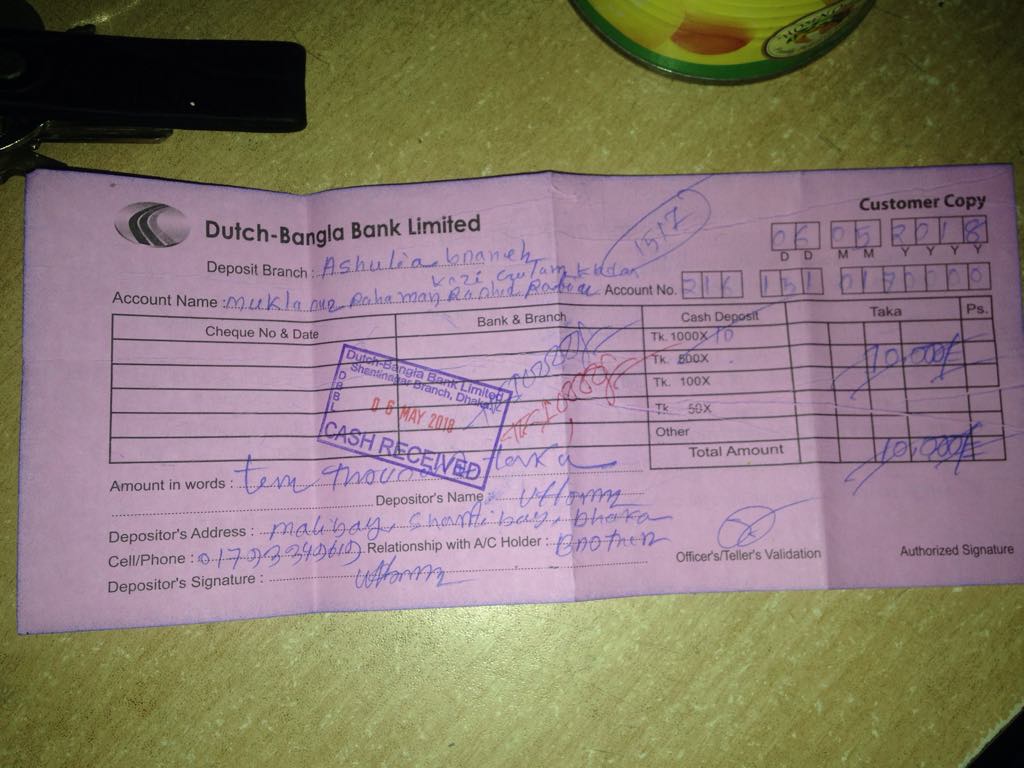 Customer Copy
Dutch-Bangla Bank Limited
1517
06 05 2018
D D M M Y Y Y Y
Deposit Branch : Ashulia branch
Kazi Gulam
Account Name : Rahaman Rashid
Account No. 216 151 0170000
Cheque No & Date Bank & Branch Cash Deposit Taka Ps.
Tk. 1000X 10
Tk. 500X 10,000/=
Tk. 100X
Tk 50X
Other
Total Amount 10,000/=
Dutch-Bangla Bank Limited
Shantinagar Branch, Dhaka
DBBL
06 MAY 2018
CASH RECEIVED
Amount in words : ten thousand taka
Depositor's Name : Uttom
Depositor's Address : malibag, Shantibag, Dhaka
Cell/Phone : Relationship with A/C Holder : Brother
Depositor's Signature : Uttom
Officer's/Teller's Validation
Authorized Signature